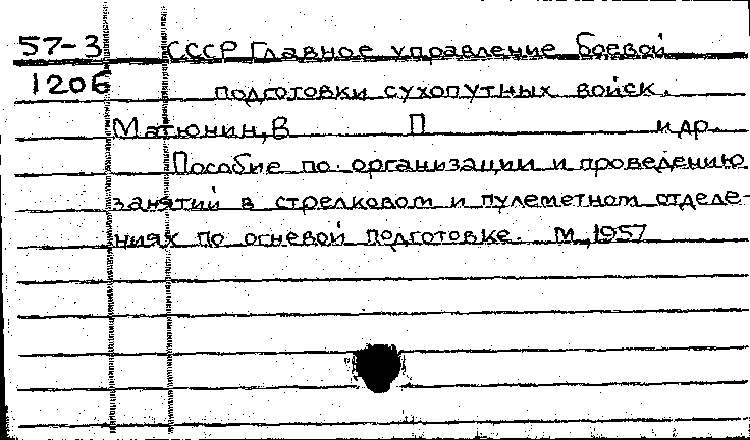 57-3 СССР Главное управление боевой
1206 подготовки сухопутных войск.
Матюнин, В П и др.
Пособие по организации и проведению
занятий в стрелковом и пулеметном отделе-
ниях по огневой подготовке. М, 1957